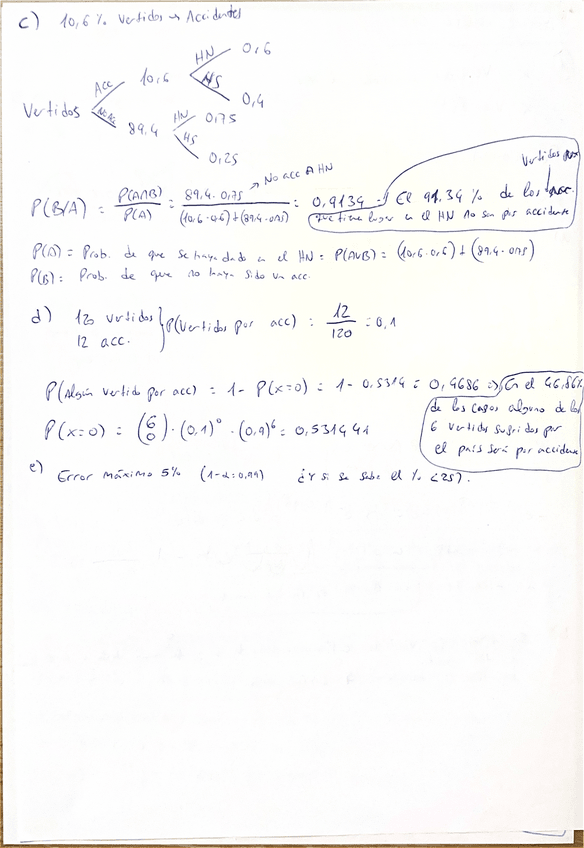 c) 10,6 % Vertidos → Accidentes
HN 0,6
Acc 10,6 HS
0,4
Vertidos
No Acc 89,4 HN 0,75
HS
0,25
→ No acc ∩ HN
Vertidos
P(B/A) = P(A∩B) / P(A) = 89,4 · 0,75 / (10,6 · 0,6) + (89,4 · 0,75) = 0,9134 ⇒ El 91,34 % de los
que tiene lugar en el HN no son por accidente
P(A) = Prob. de que se haya dado en el HN = P(A∪B) = (10,6 · 0,6) + (89,4 · 0,75)
P(B) = Prob. de que no haya sido un acc.
d) 120 vertidos
12 acc. } P(Vertidos por acc) = 12 / 120 = 0,1
P(Algún vertido por acc) = 1 - P(x=0) = 1 - 0,5314 = 0,4686 ⇒ En el 46,86%
de los casos alguno de los
P(x=0) = (6 0) · (0,1)^0 · (0,9)^6 = 0,531441
6 vertidos sufridos por
el país será por accidente
e) Error máximo 5% (1-α=0,99) ¿Y si se sabe el % <25?.